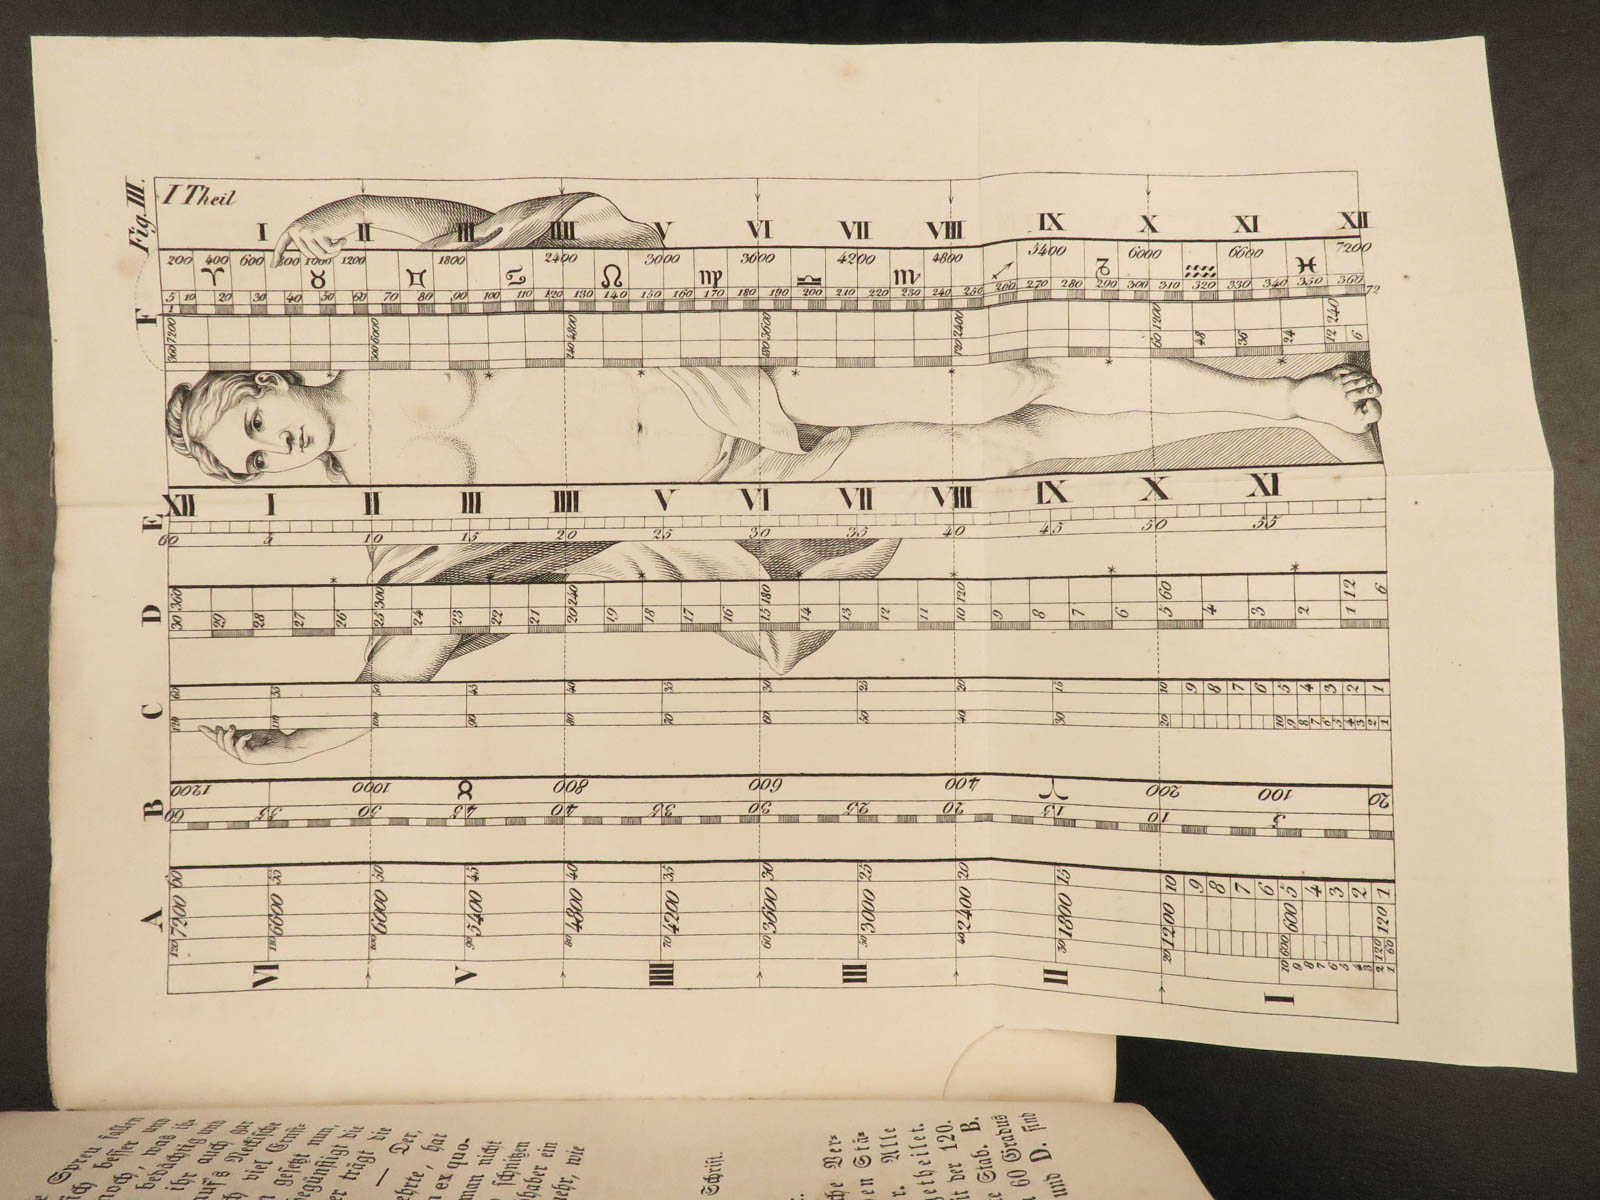 Fig. III.
I Theil
I II III IIII V VI VII VIII IX X XI XII
200 400 600 800 1000 1200 1800 2400 3000 3600 4200 4800 5400 6000 6600 7200
♈ ♉ ♊ ♋ ♌ ♍ ♎ ♏ ♐ ♑ ♒ ♓
5 10 20 30 40 50 60 70 80 90 100 110 120 130 140 150 160 170 180 190 200 210 220 230 240 250 260 270 280 290 300 310 320 330 340 350 360
72
F
360 7200 300 6000 240 4800 180 3600 120 2400 60 1200 48 36 24 12 240 6
* * * * * * *
XII I II III IIII V VI VII VIII IX X XI
E
60 5 10 15 20 25 30 35 40 45 50 55
* * * * * * *
D
30 360 29 28 27 26 25 300 24 23 22 21 20 240 19 18 17 16 15 180 14 13 12 11 10 120 9 8 7 6 5 60 4 3 2 1 12 6
C
60 55 50 45 40 35 30 25 20 15 10 9 8 7 6 5 4 3 2 1
120 110 100 90 80 70 60 50 40 30 20 10 9 8 7 6 5 4 3 2 1
B
1200 1000 ♉ 800 600 400 ♈ 200 100 20
60 55 50 45 40 35 30 25 20 15 10 5
A
60 55 50 45 40 35 30 25 20 15 10 9 8 7 6 5 4 3 2 1
7200 6600 6000 5400 4800 4200 3600 3000 2400 1800 1200 600 120
120 110 100 90 80 70 60 50 40 30 20 10 9 8 7 6 5 4 3 2 1
600 120 60
VI V IIII III II I
Spreu fallen
besser und
noch, was ih-
bedächtig und
ihr auch gar
auf's Neckische
viel Ernst-
gesetzt nun,
begünstigt die
er trägt die
— Der,
ehrte, hat
ex quo-
man nicht
schnitzen
haber ein
mehr, wie
Schrift.
che Ver-
en Stä-
r. Alle
getheilet.
it der 120.
e Stab. B.
60 Gradus
und D. sind